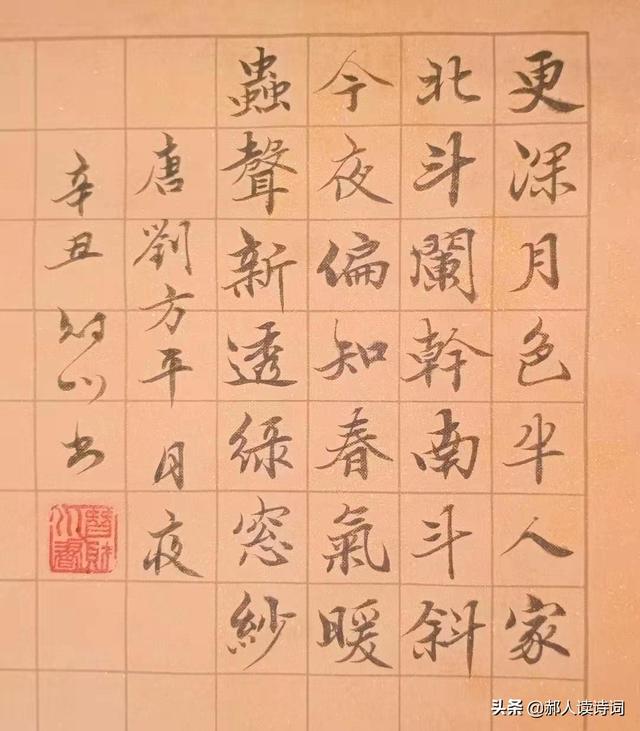 更深月色半人家
北斗闌幹南斗斜
今夜偏知春氣暖
蟲聲新透綠窓紗
唐劉方平月夜
辛丑
书
头条 @郝人读诗词